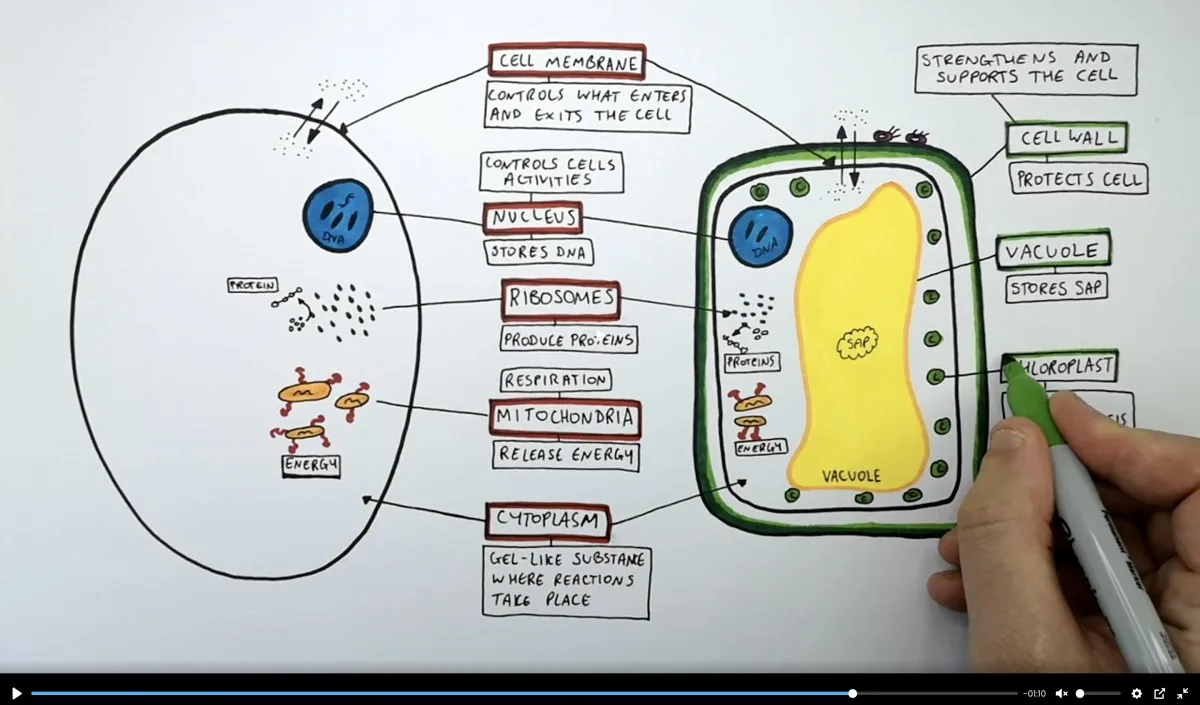 CELL MEMBRANE
CONTROLS WHAT ENTERS
AND EXITS THE CELL
CONTROLS CELLS
ACTIVITIES
NUCLEUS
STORES DNA
RIBOSOMES
PRODUCE PROTEINS
RESPIRATION
MITOCHONDRIA
RELEASE ENERGY
CYTOPLASM
GEL-LIKE SUBSTANCE
WHERE REACTIONS
TAKE PLACE
DNA
PROTEIN
ENERGY
DNA
PROTEINS
ENERGY
SAP
VACUOLE
C
C
C
C
C
C
C
C
C
C
C
C
STRENGTHENS AND
SUPPORTS THE CELL
CELL WALL
PROTECTS CELL
VACUOLE
STORES SAP
HLOROPLAST
-01:10